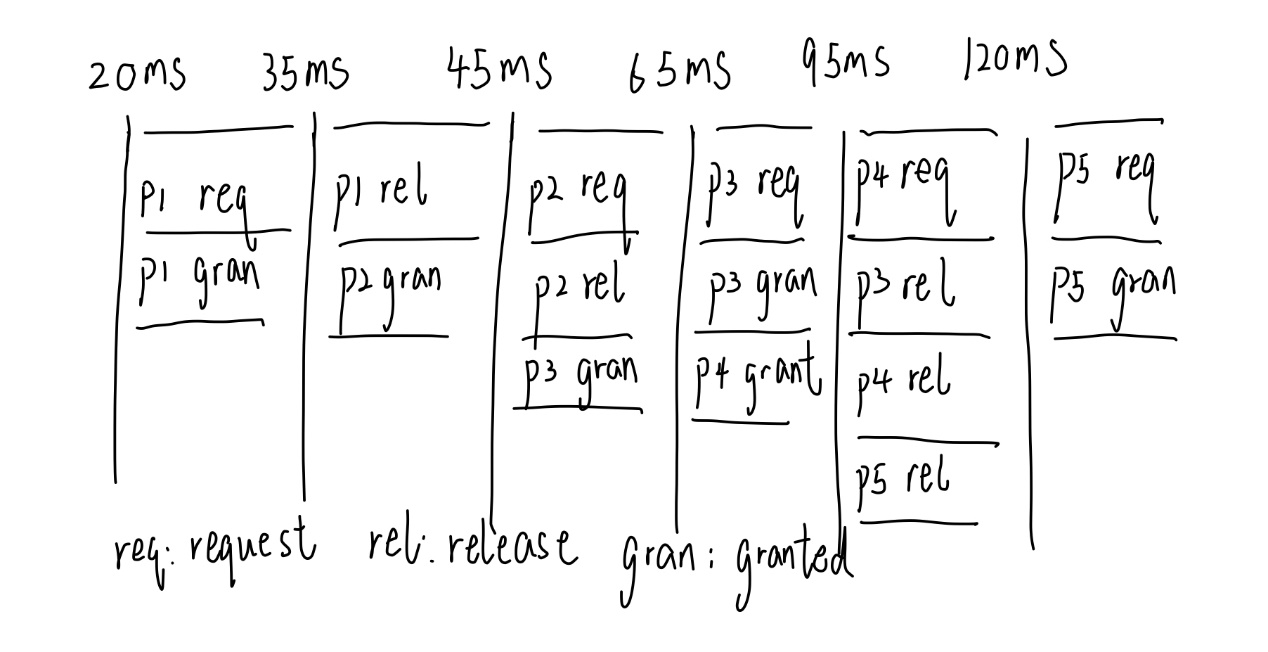 20ms 35ms 45ms 65ms 95ms 120ms
p1 req p1 rel p2 req p3 req p4 req p5 req
p1 gran p2 gran p2 rel p3 gran p3 rel p5 gran
p3 gran p4 grant p4 rel
p5 rel
req: request rel: release gran: granted